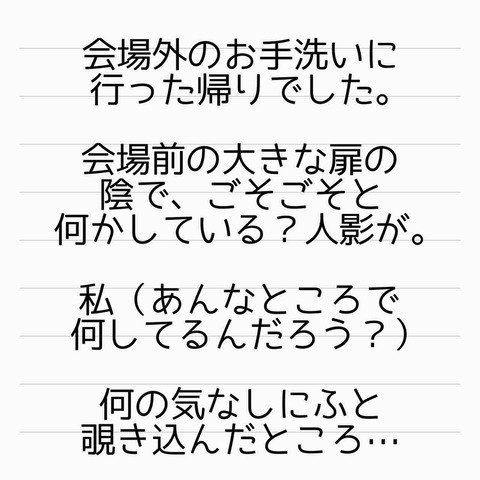 会場外のお手洗いに
行った帰りでした。
会場前の大きな扉の
陰で、ごそごそと
何かしている？人影が。
私（あんなところで
何してるんだろう？）
何の気なしにふと
覗き込んだところ…